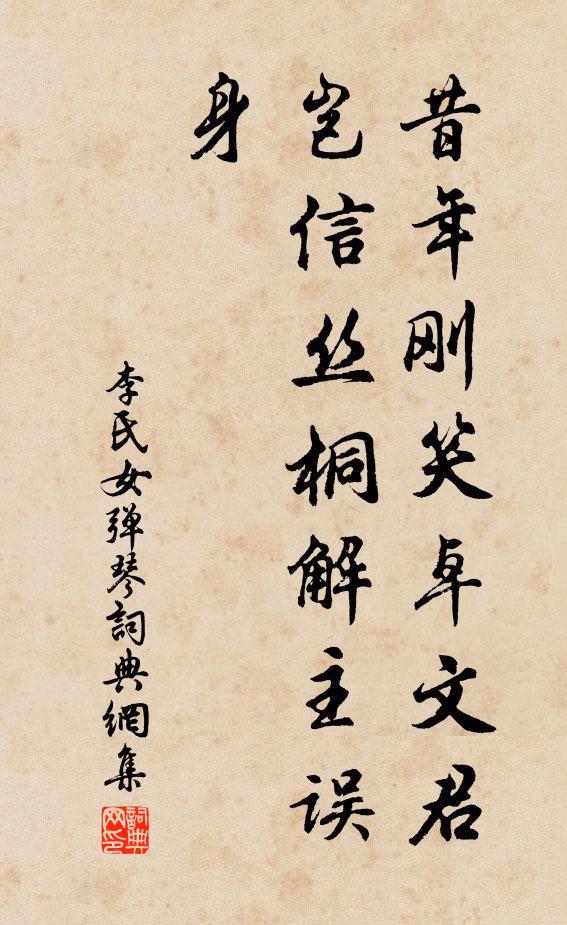 昔年刚笑卓文君
岂信丝桐解主误
身
李氏女弹琴詞典網集
詞典网印